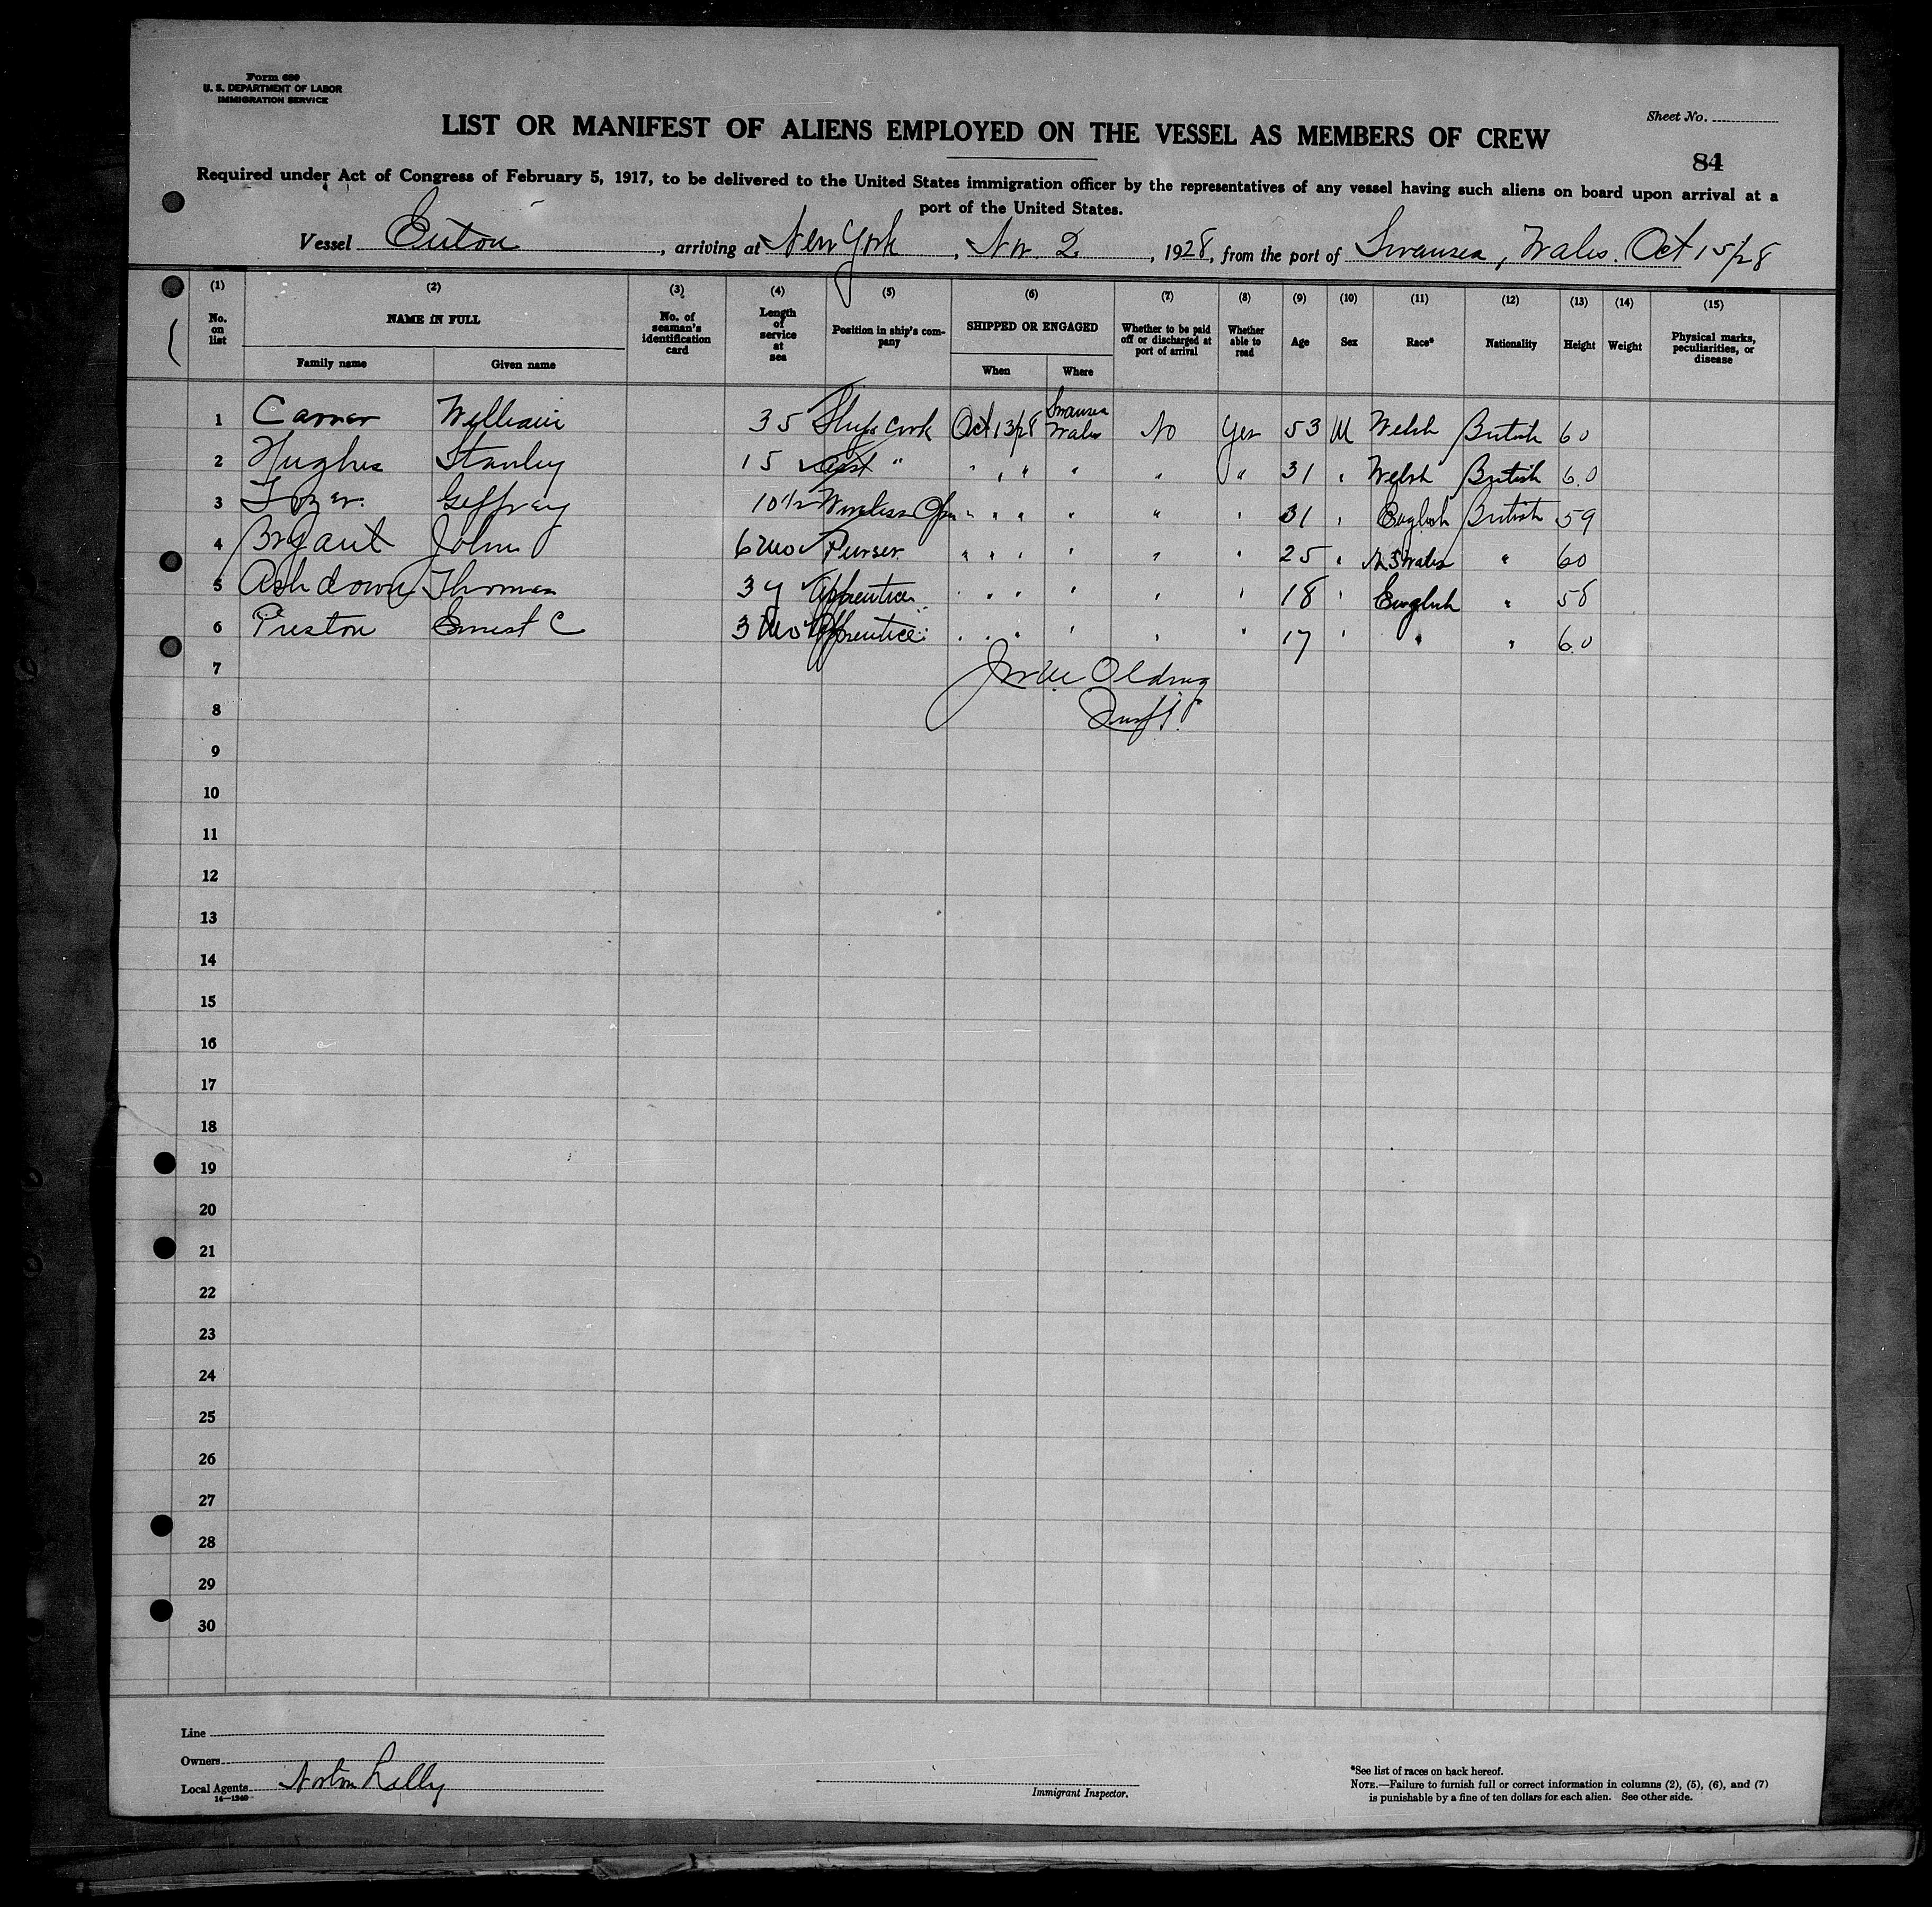 Form 680
U. S. DEPARTMENT OF LABOR
IMMIGRATION SERVICE
Sheet No.
LIST OR MANIFEST OF ALIENS EMPLOYED ON THE VESSEL AS MEMBERS OF CREW
84
Required under Act of Congress of February 5, 1917, to be delivered to the United States immigration officer by the representatives of any vessel having such aliens on board upon arrival at a
port of the United States.
Vessel , arriving at New York , Nov. 2. , 1928, from the port of Swansea, Wales. Oct 15/28
(1) (2) (3) (4) (5) (6) (7) (8) (9) (10) (11) (12) (13) (14) (15)
No. on list NAME IN FULL No. of seaman's identification card Length of service at sea Position in ship's company SHIPPED OR ENGAGED Whether to be paid off or discharged at port of arrival Whether able to read Age Sex Race* Nationality Height Weight Physical marks, peculiarities, or disease
Family name Given name When Where
1 William 35 Ships Cook Oct 13/28 Swansea Wales No Yes 53 M Welsh British 60
2 Hughes Stanley 15 Asst " " " " " " " 31 " Welsh British 6.0
3 Tozer. Geffrey 10 1/2 Wireless Opr " " " " " " 31 " English British 59
4 Bryant John 6 Mo Purser. " " " " " " 25 " N S Wales " 60
5 Ashdown Thomas 3 y Apprentice " " " " " " 18 " English " 58
6 Preston Ernest C 3 Mo Apprentice " " " " " " 17 " " " 6.0
7
8
9
10
11
12
13
14
15
16
17
18
19
20
21
22
23
24
25
26
27
28
29
30
Line
Owners
Local Agents Norton Lilly
14—1240
Immigrant Inspector.
*See list of races on back hereof.
NOTE.—Failure to furnish full or correct information in columns (2), (5), (6), and (7)
is punishable by a fine of ten dollars for each alien. See other side.